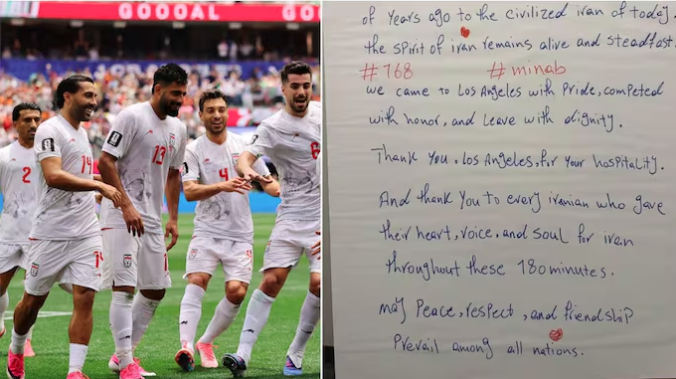 GOOOAL
2
14
13
4
6
14
13
of years ago to the civilized iran of today,
the spirit of iran remains alive and steadfast.
#168 #minab
we came to Los Angeles with Pride, competed
with honor, and leave with dignity.
Thank you, Los Angeles, for your hospitality.
And thank you to every iranian who gave
their heart, voice, and soul for iran
throughout these 180 minutes.
may Peace, respect, and friendship
Prevail among all nations.